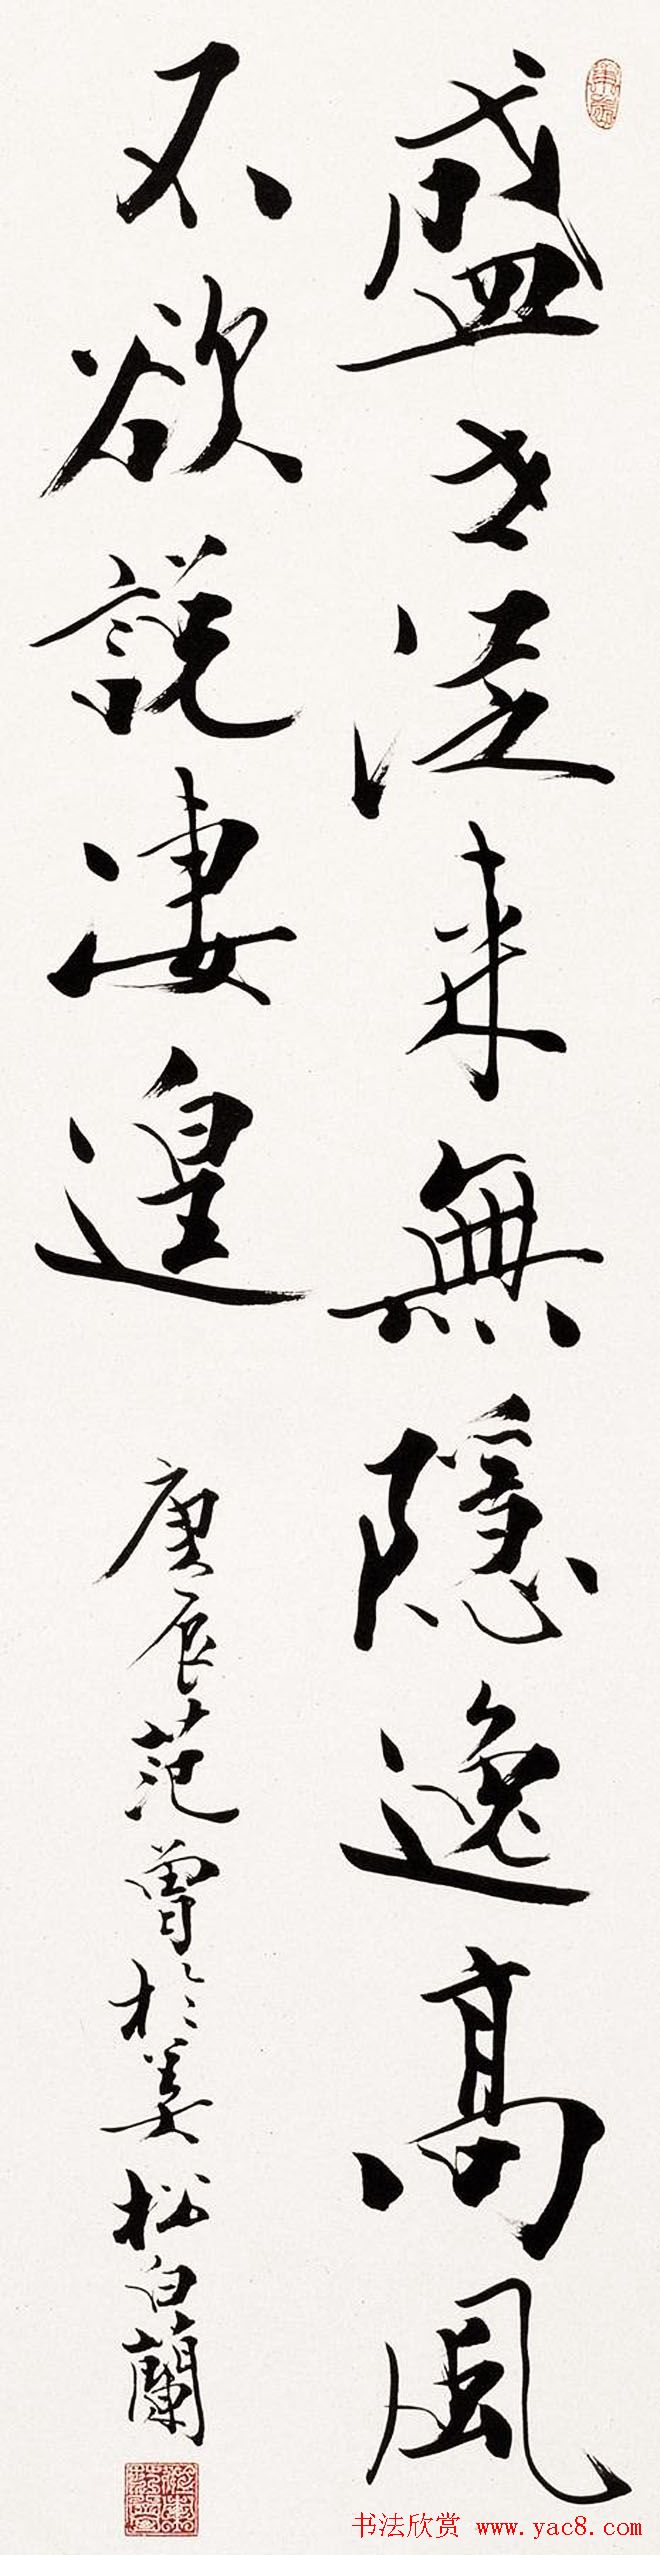 盛世從來無隱逸高風
不欲說淒遑
庚辰范曾於美松白蘭
书法欣赏 www.yac8.com